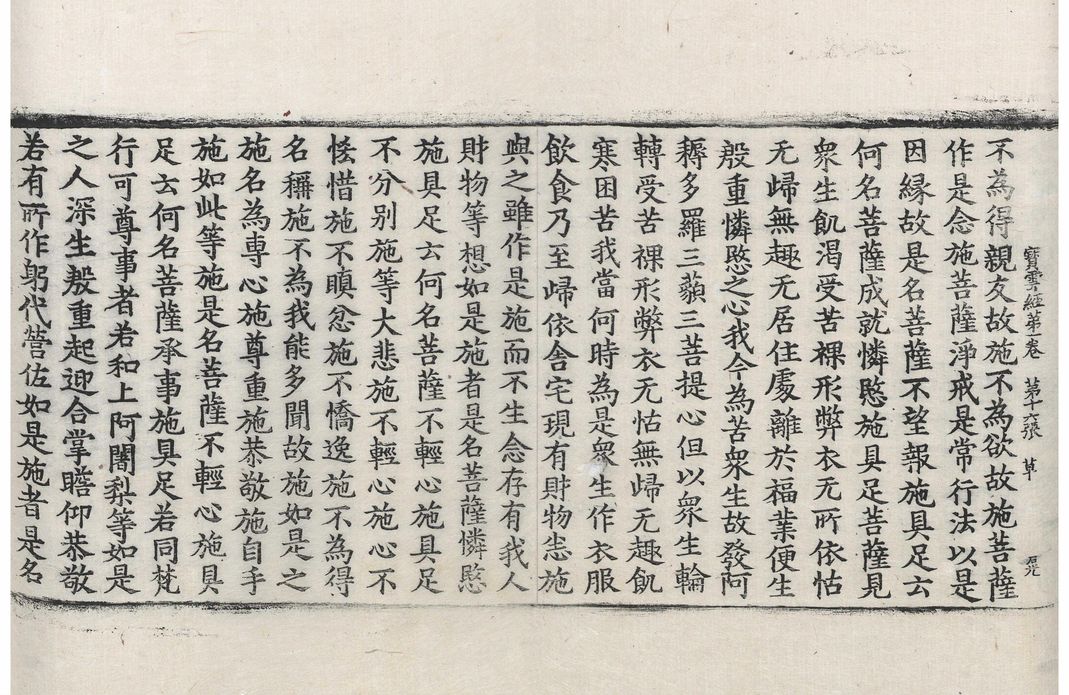 寶雲經第一卷　第十張　草
不為得親友故施不為欲故施菩薩
作是念施菩薩淨戒是常行法以是
因緣故是名菩薩不望報施具足云
何名菩薩成就憐愍施具足菩薩見
衆生飢渴受苦裸形弊衣无所依怙
无歸無趣无居住處離於福業便生
殷重憐愍之心我今為苦衆生故發阿
耨多羅三藐三菩提心但以衆生輪
轉受苦裸形弊衣无怙無歸无趣飢
寒困苦我當何時為是衆生作衣服
飲食乃至歸依舍宅現有財物悉施
與之雖作是施而不生念存有我人
財物等想如是施者是名菩薩憐愍
施具足云何名菩薩不輕心施具足
不分別施等大悲施不輕心施心不
悋惜施不瞋忿施不憍逸施不為得
名稱施不為我能多聞故施如是之
施名為專心施尊重施恭敬施自手
施如此等施是名菩薩不輕心施具
足云何名菩薩承事施具足若同梵
行可尊事者若和上阿闍梨等如是
之人深生殷重起迎合掌瞻仰恭敬
若有所作躬代營佐如是施者是名